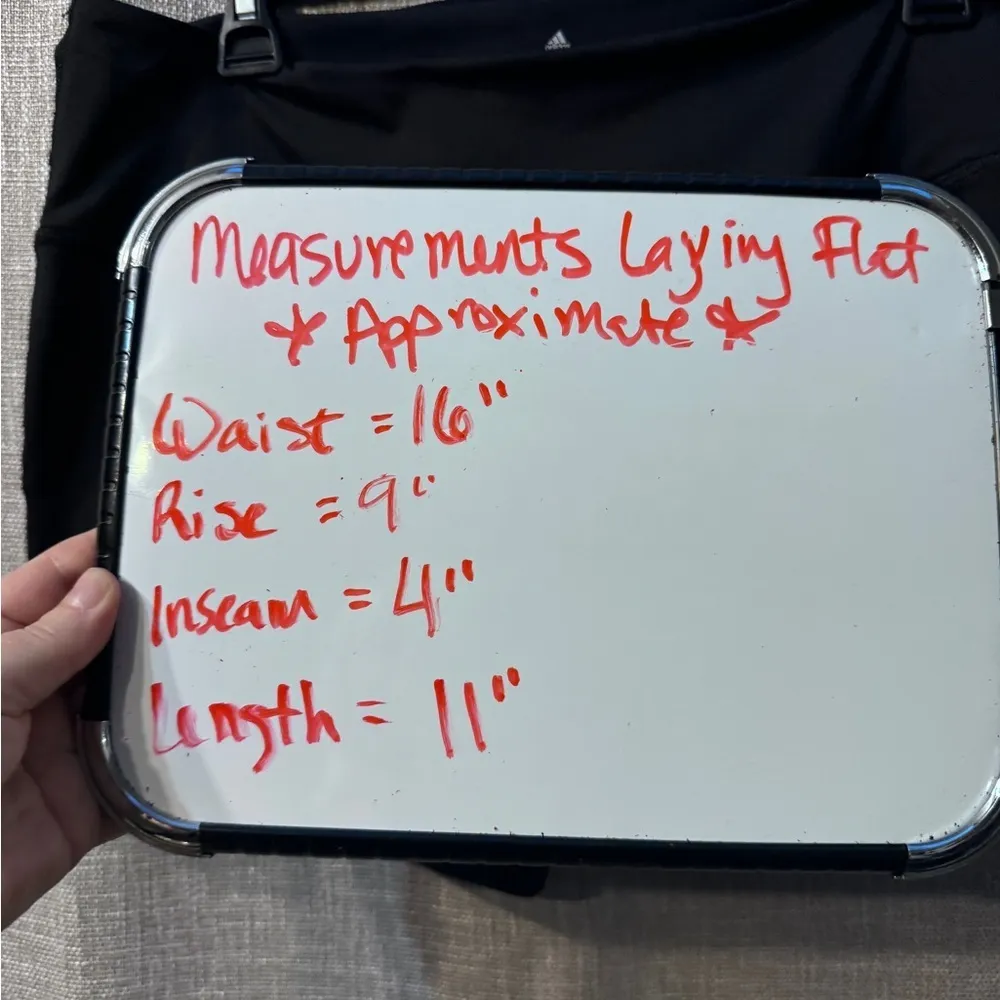 Measurements Laying Flat
* Approximate *
Waist = 16"
Rise = 9"
Inseam = 4"
Length = 11"